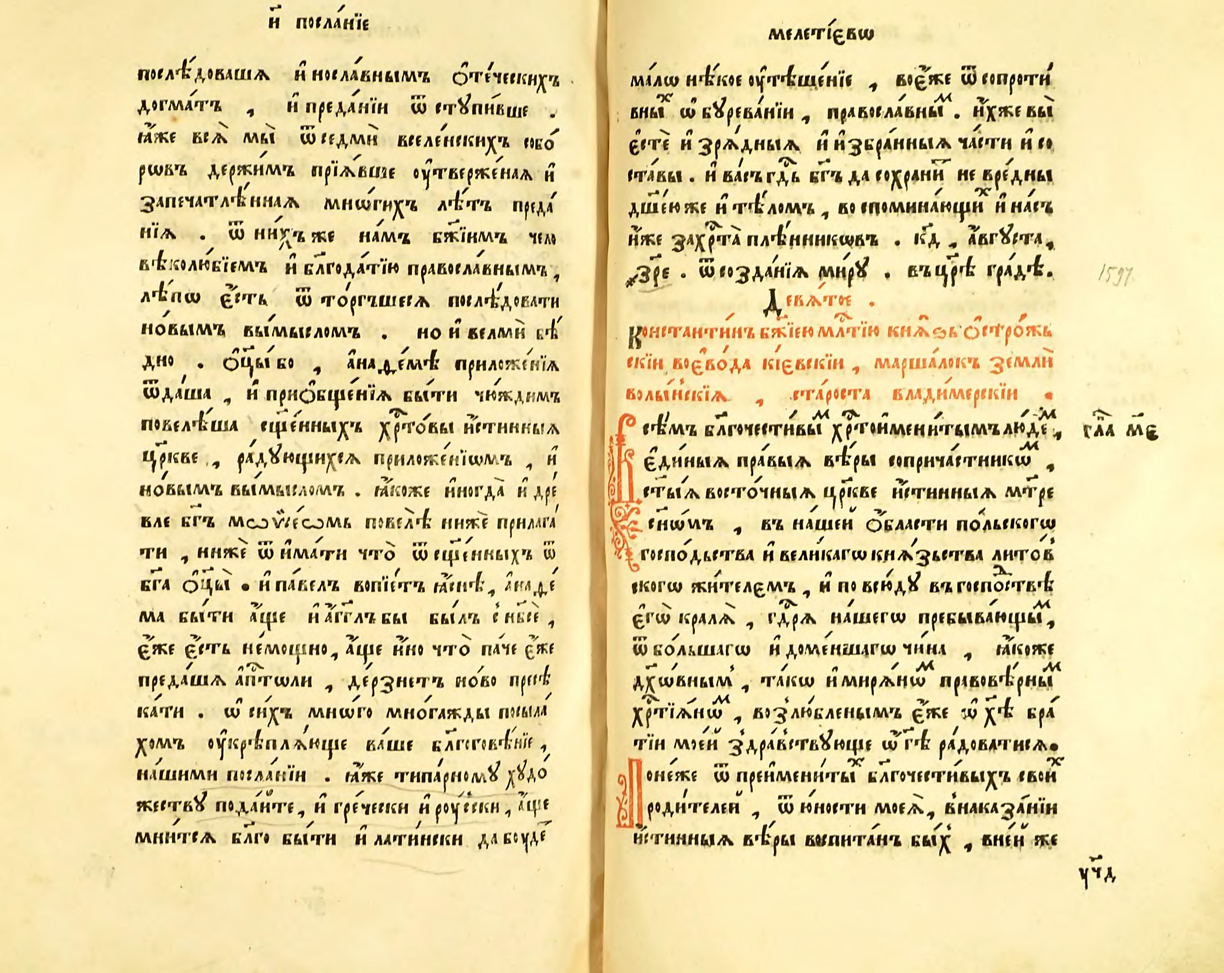 и҃ посла́нїе
послѣ́довашѧ и҆ носла́внымъ ѻ҆те́ческихъ
догма́тъ , и҆ преда́нїи ѿ стꙋпи́вше .
ꙗ҆́же всѧ̀ мы̀ ѿ седмѝ вселе́нскихъ собо́
рѡвъ держи́мъ прїѧ́вше ᲂу҆твержє́наѧ и҆
запечатлѣ́ннаѧ мнѡ́гихъ лѣ́тъ преда́
нїѧ . ѿ ни́хъ же на́мъ бж҃їимъ чело
вѣколю́бїемъ и҆ блг҃ода́тїю правосла́внымъ ,
лѣ́пѡ є҆́сть ѿ то́ргъшесѧ послѣ́довати
но́вымъ вы́мысломъ . но и҆ велмѝ бѣ́
дно . ѻ҆ц҃ы̀ бо , а҆на́ѳемѣ приложе́нїѧ
ѿда́ша , и҆ приѻбще́нїѧ бы́ти чю́ждимъ
повелѣ́ша сщ҃е́нныхъ хрⷭ҇то́вы и҆́стинныѧ
цр҃кве , ра́дꙋющихсѧ приложе́нїѡмъ , и҆
но́вымъ вы́мысломъ . ꙗ҆́коже иногда̀ и҆ дре́
вле бг҃ъ мѡѷсе́ѡмь повелѣ̀ нижѐ прилага́
ти , нижѐ ѿима́ти что̀ ѿ сщ҃е́нныхъ ѿ
бг҃а ѻ҆ц҃ы̀ . и҆ па́велъ вопїе́тъ ꙗ҆́снѣ , а҆на́ѳе́
ма бы́ти а҆́ще и҆ а҆́гг҃лъ бы бы́лъ с нб҃сѐ ,
є҆́же є҆́сть не́мощно , а҆́ще и҆́но что̀ па́че є҆́же
преда́шѧ а҆пⷭ҇толи , де́рзнетъ но́во пресѣ
ка́ти . ѡ҆ си́хъ мнѡ́го мно́гажды посыла́
хомъ ᲂу҆крѣплѧ́юще ва́ше блг҃оговѣ́нїе ,
на́шими посла́нїи . ꙗ҆́же типа́рномꙋ хꙋдо́
жествꙋ пода́йте , и҆ гре́чески и҆ роу́сски , а҆́ще
мни́тсѧ бл҃го бы́ти и҆ лати́нски да боуде́
мелетїєвѡ
ма́лѡ нѣ́кое ᲂу҆тѣше́нїе , воє҆́же ѿ сопроти́
вныⷯ ѡ҆ бꙋрева́нїи , правосла́вныⷨ . и҆́хже вы̀
є҆стѐ и҆ зрѧ́дныѧ и҆ и҆збра́нныѧ ча́сти и҆ со
ста́вы . и҆ ва́съ гдⷭ҇ь бг҃ъ да сохрани́тъ не вре́дны
дш҃ею же и҆ тѣ́ломъ , воспомина́ющиⷯ и҆ на́съ
и҆́же за хрⷭ҇та̀ плѣ́нникѡвъ . к҃д , а҆́вгꙋста ,
҂зр҃е . ѿ созда́нїѧ ми́рꙋ . въ цр҃ѣ гра́дѣ .
1597
Девѧ́тое .
Константи́нъ бж҃їею млⷭ҇тїю кнѧѕь ѻ҆стро́жь
скїи воєво́да кїєвскїи , марша́локъ землѝ
волы́нскїѧ , ста́роста владимерскїи .
Всѣ́мъ блг҃очести́выⷨ хрⷭ҇тоимени́тымъ лю́деⷨ ,
гл҃а м҃є
єди́ныѧ пра́выѧ вѣ́ры соприча́стникѡⷨ ,
ст҃ы́ѧ восто́чныѧ цр҃кве и҆́стинныѧ мт҃ре
сн҃ѡ́мъ , въ на́шей ѻ҆́бласти по́льскогѡ
госпо́дьства и҆ вели́кагѡ кнѧ́зьства лито́в
скогѡ жи́телємъ , и҆ по всю́дꙋ въ госпоⷭ҇твѣ
є҆гѡ̀ кра́лѧ , гдⷭ҇рѧ на́шегѡ пребыва́ющыⷨ ,
ѿ бо́льшагѡ и҆ до ме́ншагѡ чи́на , ꙗ҆́коже
дх҃о́внымъ , та́кѡ и҆ мирѧ́нѡⷨ правовѣ́рныⷨ
хрⷭ҇тїѧ́нѡⷨ , возлю́бленымъ є҆́же ѡ҆ хѣ҃ бра́
тїи мое́й здра́вствꙋюще ѡ҆ гѣ҃ ра́доватисѧ .
Поне́же ѿ преимени́тыⷯ блг҃очести́выхъ свои́хъ
роди́телей , ѿ ю́ности моеѧ̀ , в наказа́нїи
и҆́стинныѧ вѣ́ры воспита́нъ бы́хъ , в не́й же
ᲂу҆чⷭ҇а